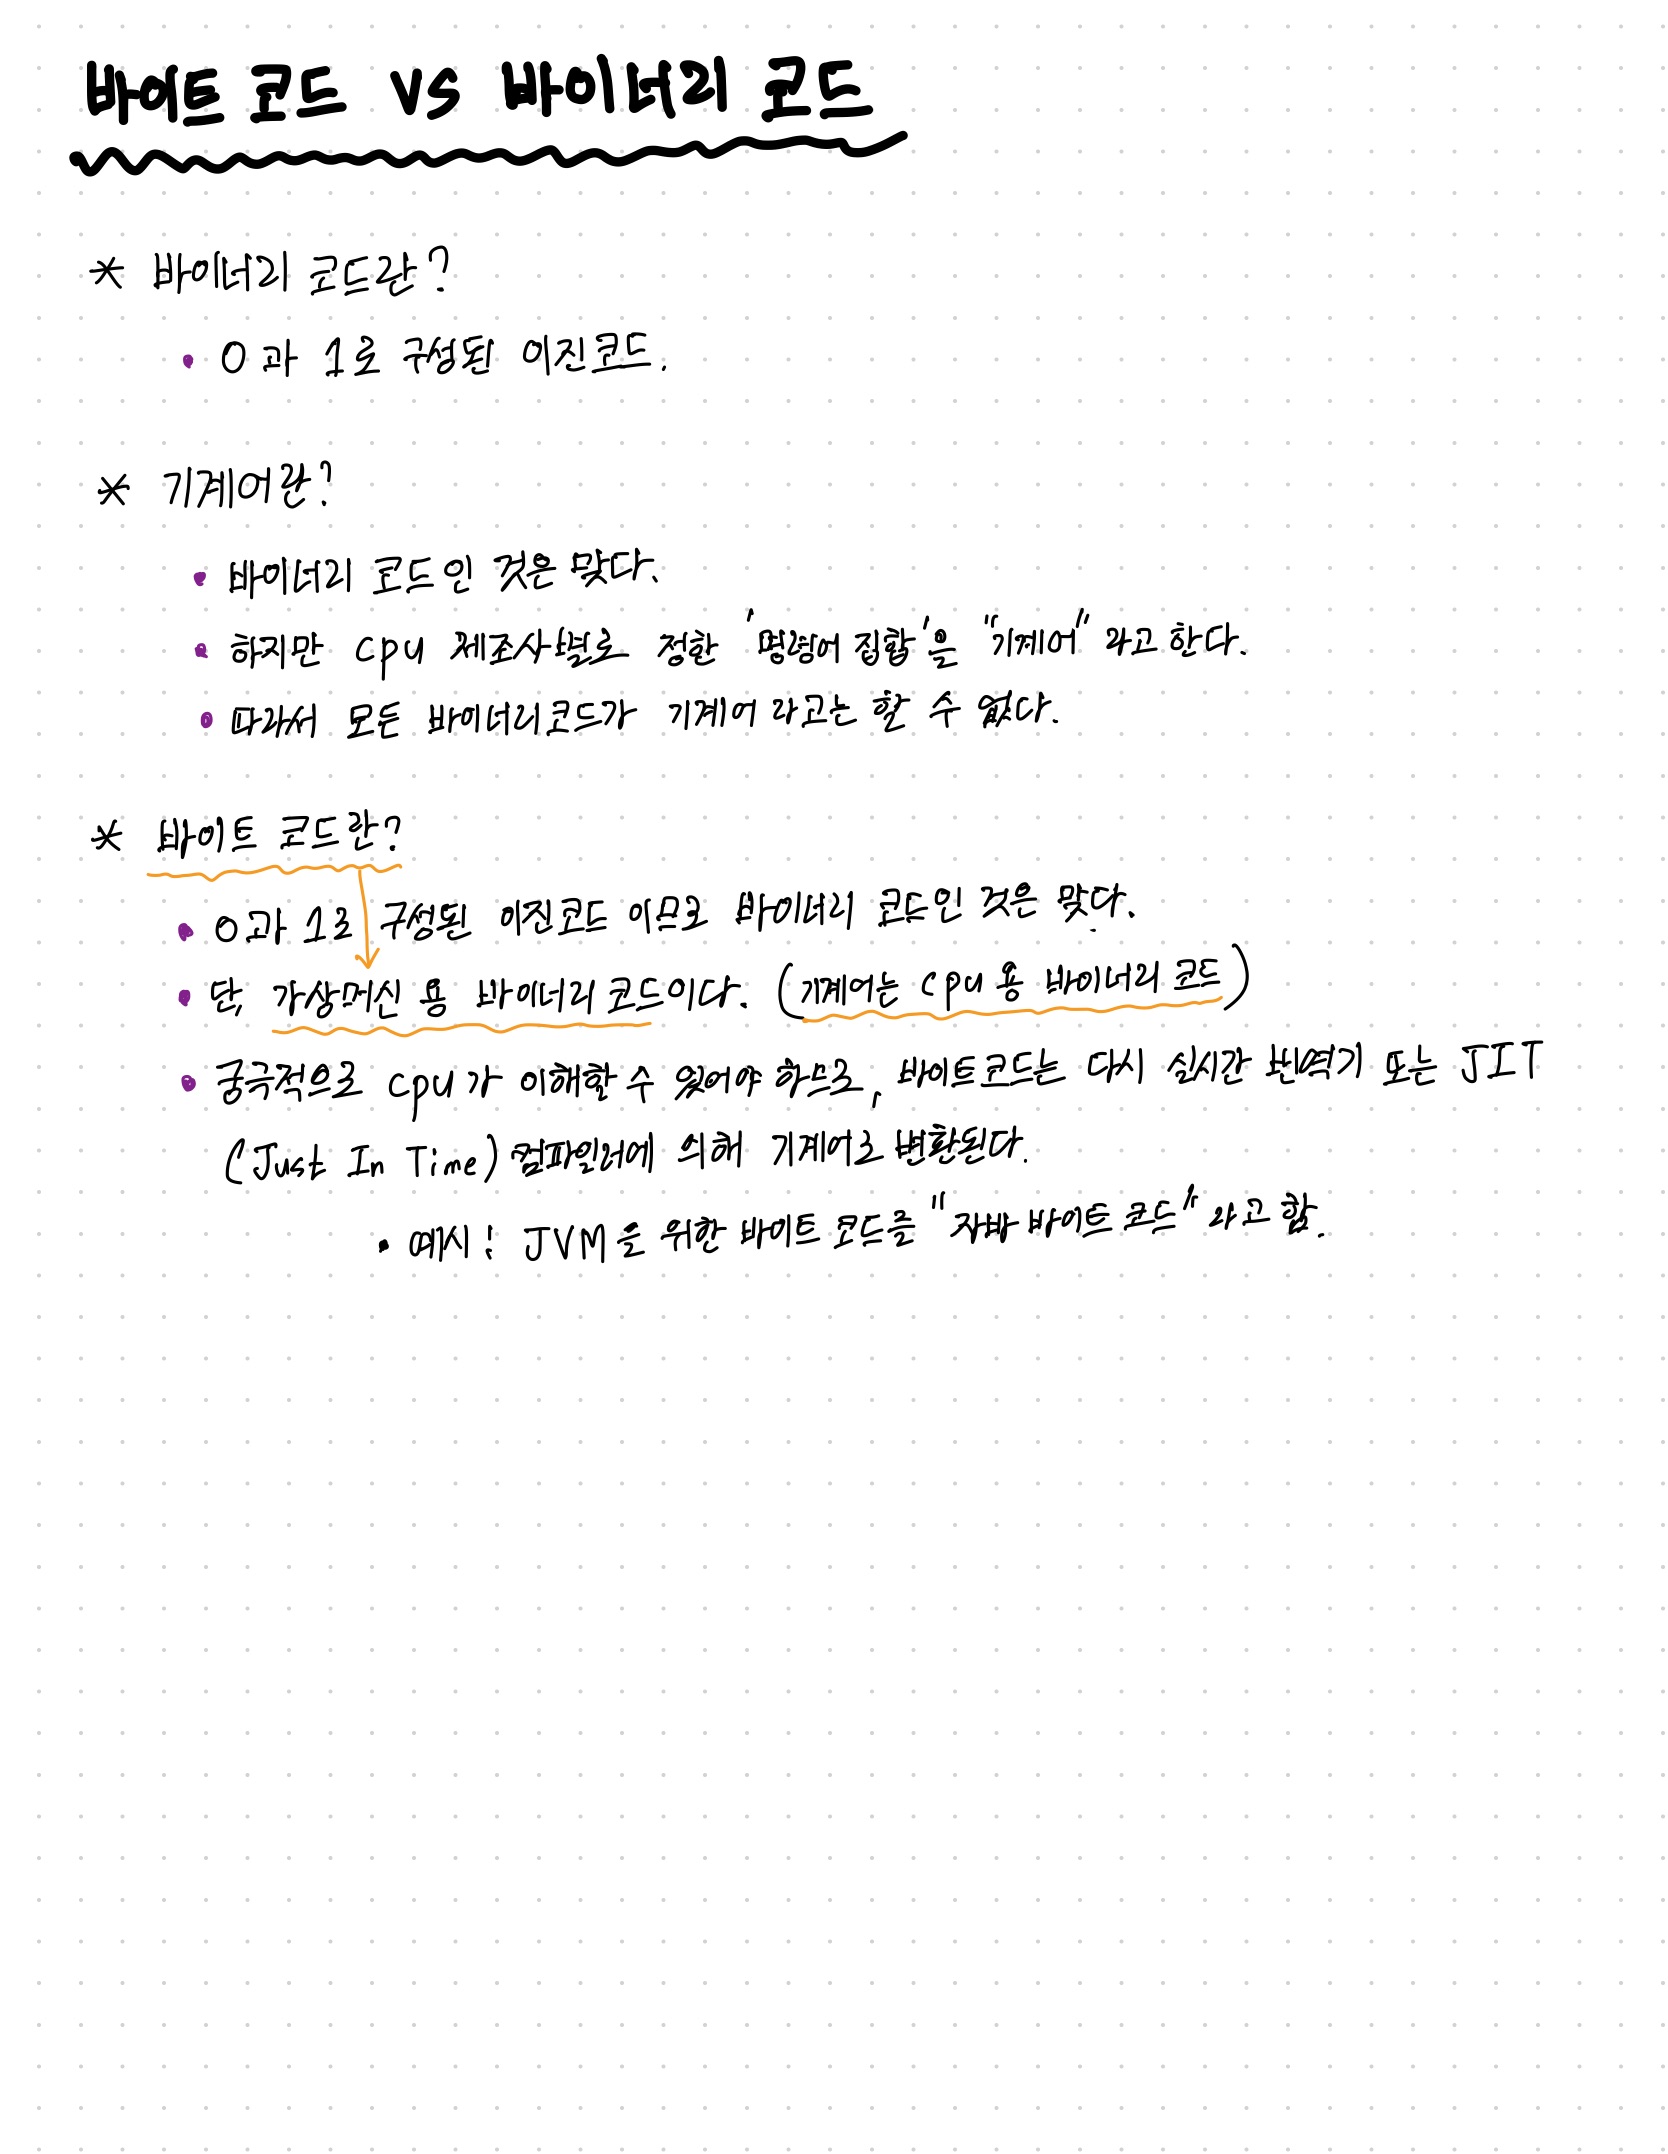 바이트 코드 VS 바이너리 코드
* 바이너리 코드란?
• 0과 1로 구성된 이진코드.
* 기계어란?
• 바이너리 코드인 것은 맞다.
• 하지만 cpu 제조사별로 정한 '명령어 집합'을 "기계어"라고 한다.
• 따라서 모든 바이너리코드가 기계어 라고는 할 수 없다.
* 바이트 코드란?
• 0과 1로 구성된 이진코드 이므로 바이너리 코드인 것은 맞다.
• 단, 가상머신 용 바이너리 코드이다. (기계어는 cpu 용 바이너리 코드)
• 궁극적으로 cpu가 이해할 수 있어야 하므로, 바이트코드는 다시 실시간 번역기 또는 JIT
(Just In Time) 컴파일러에 의해 기계어로 변환된다.
• 예시! JVM을 위한 바이트 코드를 "자바 바이트 코드"라고 함.